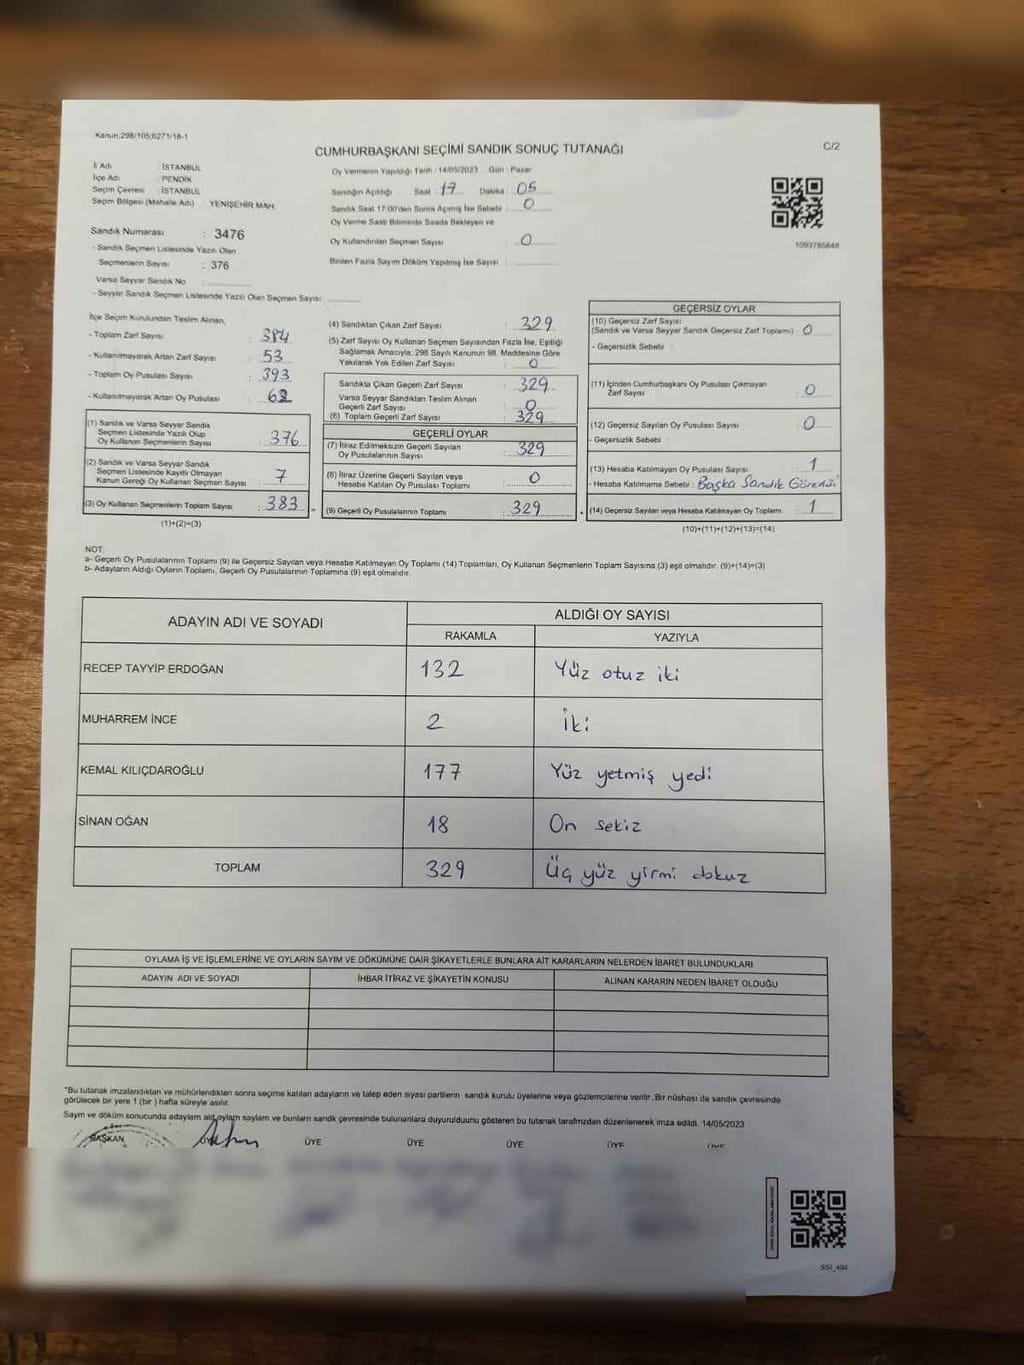 Kanun;298/105;6271/18-1
C/2
CUMHURBAŞKANI SEÇİMİ SANDIK SONUÇ TUTANAĞI
İl Adı : İSTANBUL
İlçe Adı : PENDİK
Seçim Çevresi : İSTANBUL
Seçim Bölgesi (Mahalle Adı) YENİŞEHİR MAH.
Sandık Numarası : 3476
- Sandık Seçmen Listesinde Yazılı Olan
Seçmenlerin Sayısı : 376
Varsa Seyyar Sandık No :
- Seyyar Sandık Seçmen Listesinde Yazılı Olan Seçmen Sayısı:
Oy Vermenin Yapıldığı Tarih : 14/05/2023 Gün : Pazar
Sandığın Açıldığı Saat : 17 Dakika : 05
Sandık Saat 17:00'den Sonra Açılmış İse Sebebi : 0
Oy Verme Saati Bitiminde Sırada Bekleyen ve
Oy Kullandırılan Seçmen Sayısı : 0
Birden Fazla Sayım Döküm Yapılmış İse Sayısı :
1093785648
İlçe Seçim Kurulundan Teslim Alınan;
- Toplam Zarf Sayısı : 384
- Kullanılmayarak Artan Zarf Sayısı : 53
- Toplam Oy Pusulası Sayısı : 393
- Kullanılmayarak Artan Oy Pusulası : 62
(1) Sandık ve Varsa Seyyar Sandık
Seçmen Listesinde Yazılı Olup
Oy Kullanan Seçmenlerin Sayısı : 376
(2) Sandık ve Varsa Seyyar Sandık
Seçmen Listesinde Kayıtlı Olmayan
Kanun Gereği Oy Kullanan Seçmen Sayısı : 7
(3) Oy Kullanan Seçmenlerin Toplam Sayısı : 383
(1)+(2)=(3)
(4) Sandıktan Çıkan Zarf Sayısı : 329
(5) Zarf Sayısı Oy Kullanan Seçmen Sayısından Fazla İse, Eşitliği
Sağlamak Amacıyla; 298 Sayılı Kanunun 98. Maddesine Göre
Yakılarak Yok Edilen Zarf Sayısı : 0
Sandıkta Çıkan Geçerli Zarf Sayısı : 329
Varsa Seyyar Sandıktan Teslim Alınan
Geçerli Zarf Sayısı : 0
(6) Toplam Geçerli Zarf Sayısı : 329
GEÇERLİ OYLAR
(7) İtiraz Edilmeksizin Geçerli Sayılan
Oy Pusulalarının Sayısı : 329
(8) İtiraz Üzerine Geçerli Sayılan veya
Hesaba Katılan Oy Pusulası Toplamı : 0
(9) Geçerli Oy Pusulalarının Toplamı : 329
GEÇERSİZ OYLAR
(10) Geçersiz Zarf Sayısı
(Sandık ve Varsa Seyyar Sandık Geçersiz Zarf Toplamı) : 0
- Geçersizlik Sebebi :
(11) İçinden Cumhurbaşkanı Oy Pusulası Çıkmayan
Zarf Sayısı : 0
(12) Geçersiz Sayılan Oy Pusulası Sayısı : 0
- Geçersizlik Sebebi :
(13) Hesaba Katılmayan Oy Pusulası Sayısı : 1
- Hesaba Katılmama Sebebi : Başka Sandık Görevlisi
(14) Geçersiz Sayılan veya Hesaba Katılmayan Oy Toplamı : 1
(10)+(11)+(12)+(13)=(14)
NOT:
a- Geçerli Oy Pusulalarının Toplamı (9) ile Geçersiz Sayılan veya Hesaba Katılmayan Oy Toplamı (14) Toplamları, Oy Kullanan Seçmenlerin Toplam Sayısına (3) eşit olmalıdır. (9)+(14)=(3)
b- Adayların Aldığı Oyların Toplamı, Geçerli Oy Pusulalarının Toplamına (9) eşit olmalıdır.
ADAYIN ADI VE SOYADI ALDIĞI OY SAYISI
RAKAMLA YAZIYLA
RECEP TAYYİP ERDOĞAN 132 Yüz otuz iki
MUHARREM İNCE 2 İki
KEMAL KILIÇDAROĞLU 177 Yüz yetmiş yedi
SİNAN OĞAN 18 On sekiz
TOPLAM 329 Üç yüz yirmi dokuz
OYLAMA İŞ VE İŞLEMLERİNE VE OYLARIN SAYIM VE DÖKÜMÜNE DAİR ŞİKAYETLERLE BUNLARA AİT KARARLARIN NELERDEN İBARET BULUNDUKLARI
ADAYIN ADI VE SOYADI İHBAR İTİRAZ VE ŞİKAYETİN KONUSU ALINAN KARARIN NEDEN İBARET OLDUĞU
*Bu tutanak imzalandıktan ve mühürlendikten sonra seçime katılan adayların ve talep eden siyasi partilerin sandık kurulu üyelerine veya gözlemcilerine verilir. Bir nüshası da sandık çevresinde
görülecek bir yere 1 (bir) hafta süreyle asılır.
Sayım ve döküm sonucunda adayların aldığı oyların sayıları ve bunların sandık çevresinde bulunanlara duyurulduğunu gösteren bu tutanak tarafımızdan düzenlenerek imza edildi. 14/05/2023
BAŞKAN ÜYE ÜYE ÜYE ÜYE ÜYE
SSİ_404